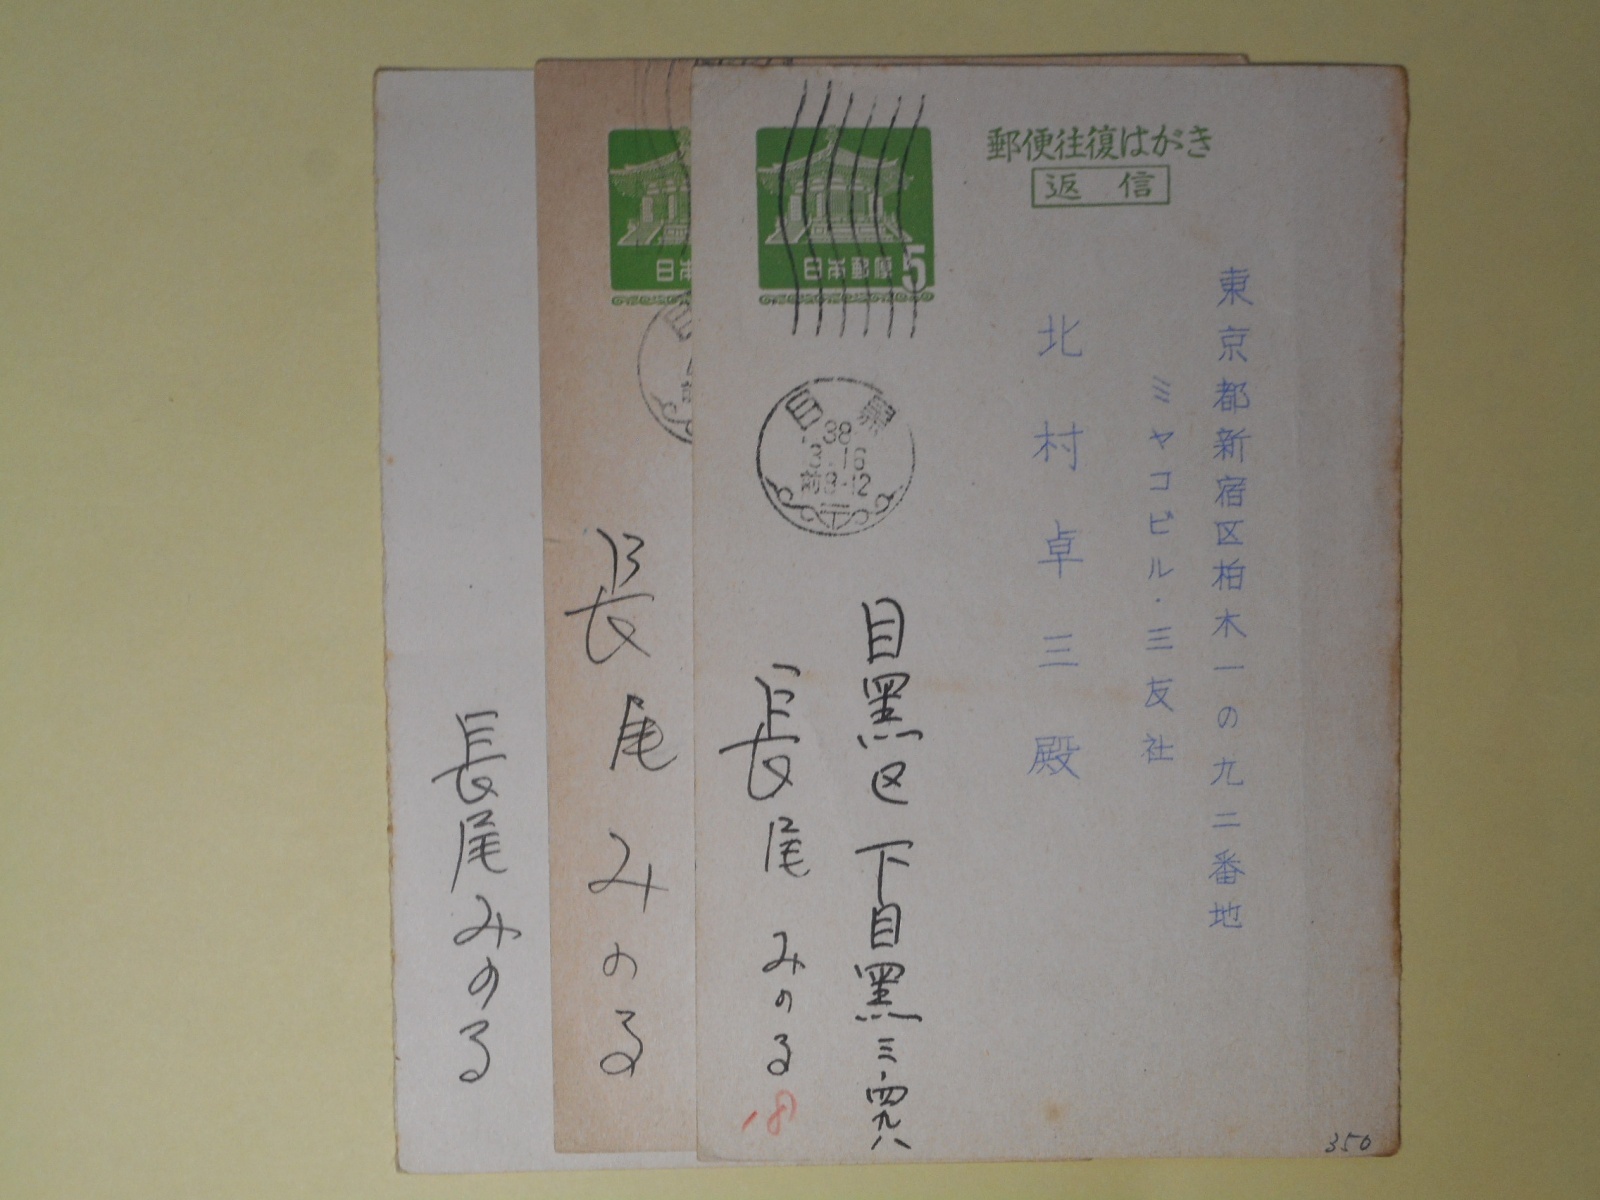 郵便往復はがき
返信
東京都新宿区柏木一の九二番地
ミヤコビル・三友社
北村卓三殿
日本郵便
5
目黒
38
3.16
前8-12
目黒区下目黒三・四九八
長尾みのる
18
350
日本
長尾みのる
長尾みのる